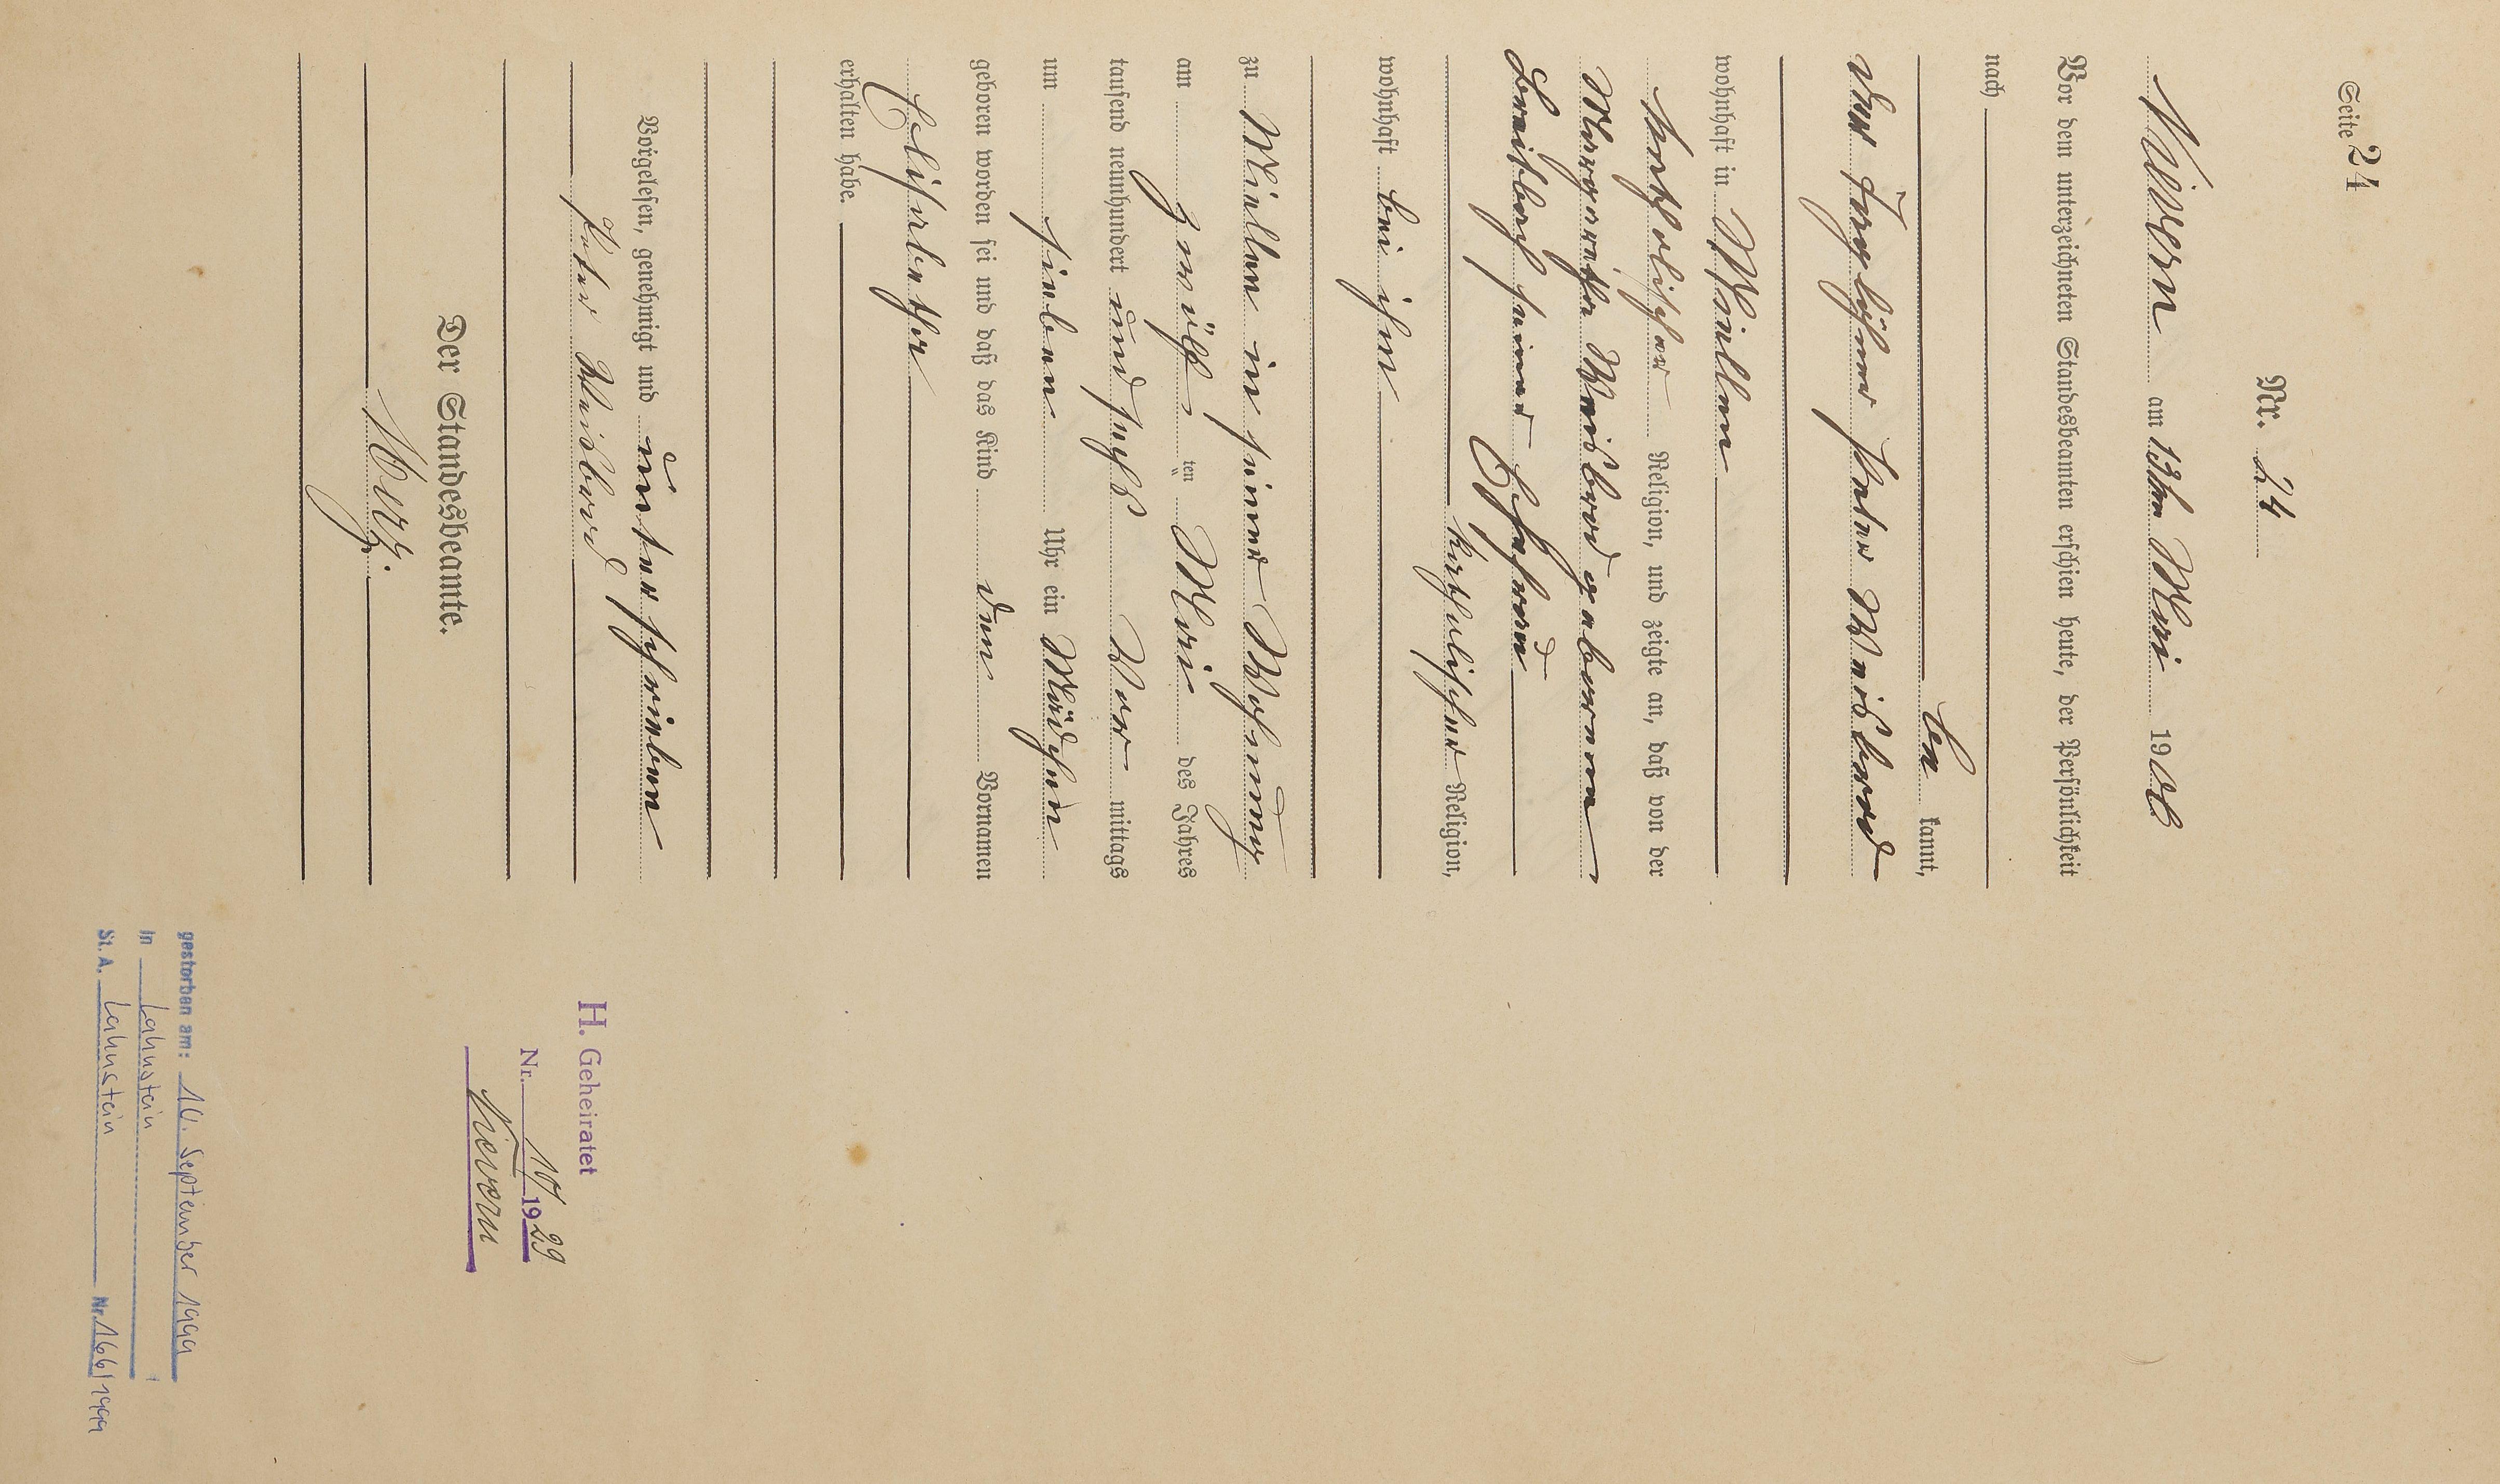 Seite 24
Nr. 24
Nievern am 13ten Mai 1906
Vor dem unterzeichneten Standesbeamten erschien heute, der Persönlichkeit
nach
be kannt,
der Tagelöhner Peter Weisbrod
wohnhaft in Miellen
katholischer Religion, und zeigte an, daß von der
Margaretha Weisbrod geborenen
Breitbach seiner Ehefrau
katholischer Religion,
wohnhaft bei ihm
zu Miellen in seiner Wohnung
am zwölf ten Mai des Jahres
tausend neunhundert und sechs Vor mittags
um sieben Uhr ein Mädchen
geboren worden sei und daß das Kind den Vornamen
Elisabetha
erhalten habe.
Vorgelesen, genehmigt und unterschrieben
Peter Weisbrod
Der Standesbeamte.
H. Geheiratet
Nr. 10 1929
Nievern
gestorben am: 10. September 1999
in Lahnstein
St. A. Lahnstein Nr. 166/1999